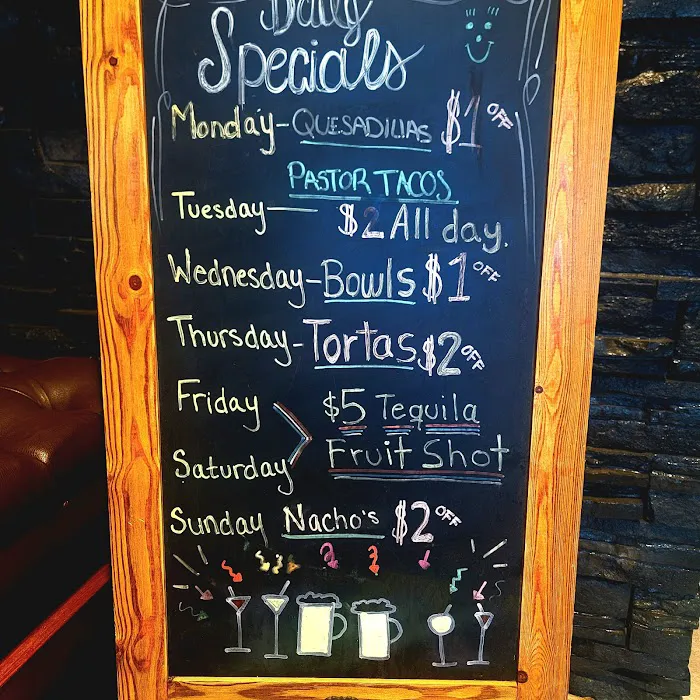 Daily
Specials
Monday-QUESADILLAS $1 OFF
PASTOR TACOS
Tuesday— $2 All day.
Wednesday-Bowls $1 OFF
Thursday-Tortas $2 OFF
Friday $5 Tequila
Saturday Fruit Shot
Sunday Nacho's $2 OFF